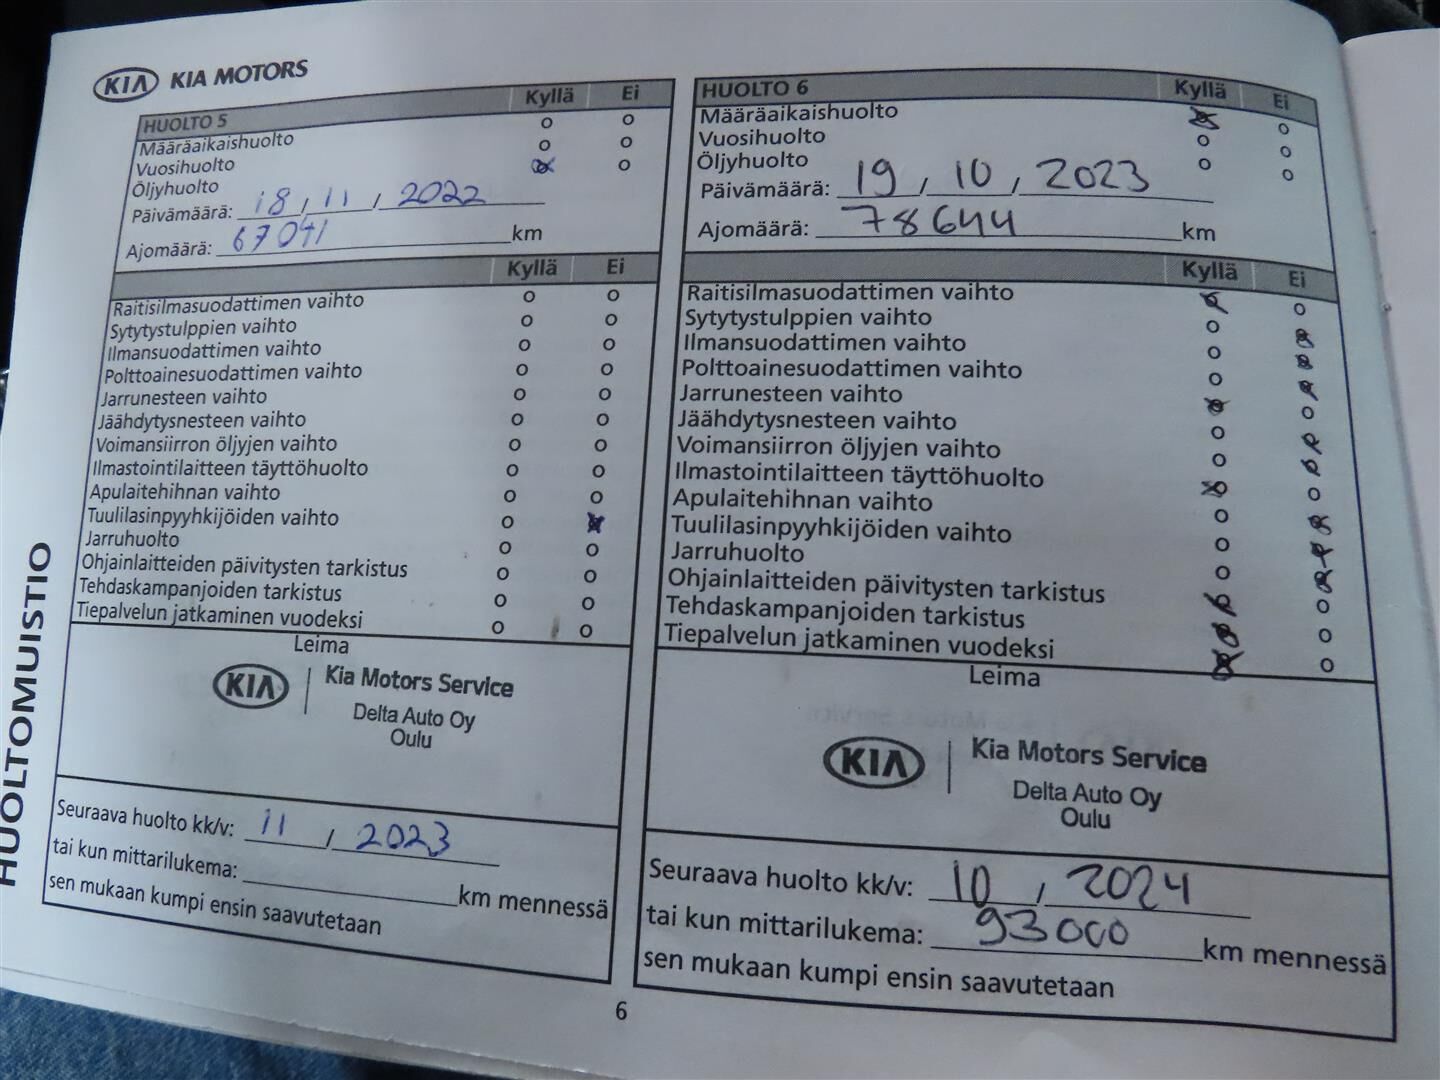 KIA KIA MOTORS
HUOLTO 5 Kyllä Ei
Määräaikaishuolto
Vuosihuolto
Öljyhuolto
Päivämäärä: 18 / 11 / 2022
Ajomäärä: 67041 km
Kyllä Ei
Raitisilmasuodattimen vaihto
Sytytystulppien vaihto
Ilmansuodattimen vaihto
Polttoainesuodattimen vaihto
Jarrunesteen vaihto
Jäähdytysnesteen vaihto
Voimansiirron öljyjen vaihto
Ilmastointilaitteen täyttöhuolto
Apulaitehihnan vaihto
Tuulilasinpyyhkijöiden vaihto
Jarruhuolto
Ohjainlaitteiden päivitysten tarkistus
Tehdaskampanjoiden tarkistus
Tiepalvelun jatkaminen vuodeksi
Leima
KIA Kia Motors Service
Delta Auto Oy
Oulu
Seuraava huolto kk/v: 11 / 2023
tai kun mittarilukema: km mennessä
sen mukaan kumpi ensin saavutetaan
HUOLTO 6 Kyllä Ei
Määräaikaishuolto
Vuosihuolto
Öljyhuolto
Päivämäärä: 19 / 10 / 2023
Ajomäärä: 78644 km
Kyllä Ei
Raitisilmasuodattimen vaihto
Sytytystulppien vaihto
Ilmansuodattimen vaihto
Polttoainesuodattimen vaihto
Jarrunesteen vaihto
Jäähdytysnesteen vaihto
Voimansiirron öljyjen vaihto
Ilmastointilaitteen täyttöhuolto
Apulaitehihnan vaihto
Tuulilasinpyyhkijöiden vaihto
Jarruhuolto
Ohjainlaitteiden päivitysten tarkistus
Tehdaskampanjoiden tarkistus
Tiepalvelun jatkaminen vuodeksi
Leima
KIA Kia Motors Service
Delta Auto Oy
Oulu
Seuraava huolto kk/v: 10 / 2024
tai kun mittarilukema: 93000 km mennessä
sen mukaan kumpi ensin saavutetaan
HUOLTOMUISTIO
6